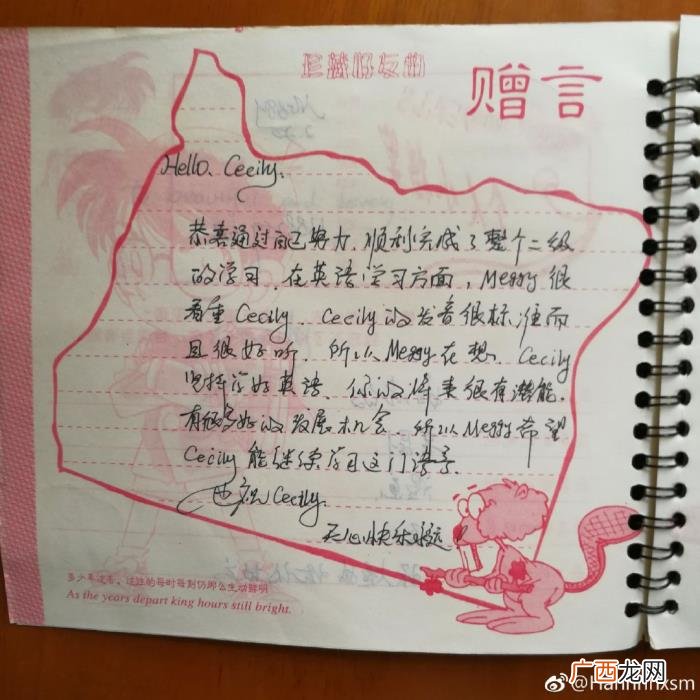 珍藏好友册
赠言
Hello. Cecily.
恭喜通过自己努力，顺利完成了整个二级
的学习，在英语学习方面，Merry很
看重Cecily. Cecily的发音很标准而
且很好听. 所以Merry在想. Cecily
坚持学好英语. 你的将来很有潜能.
有很多好的发展机会. 所以Merry希望
Cecily能继续学习这门语言.
也祝Cecily.
开心快乐永远！
多少年过去，过往的每时每刻仍那么生动鲜明
As the years depart king hours still bright.
@Hannnnxsm
广西龙网